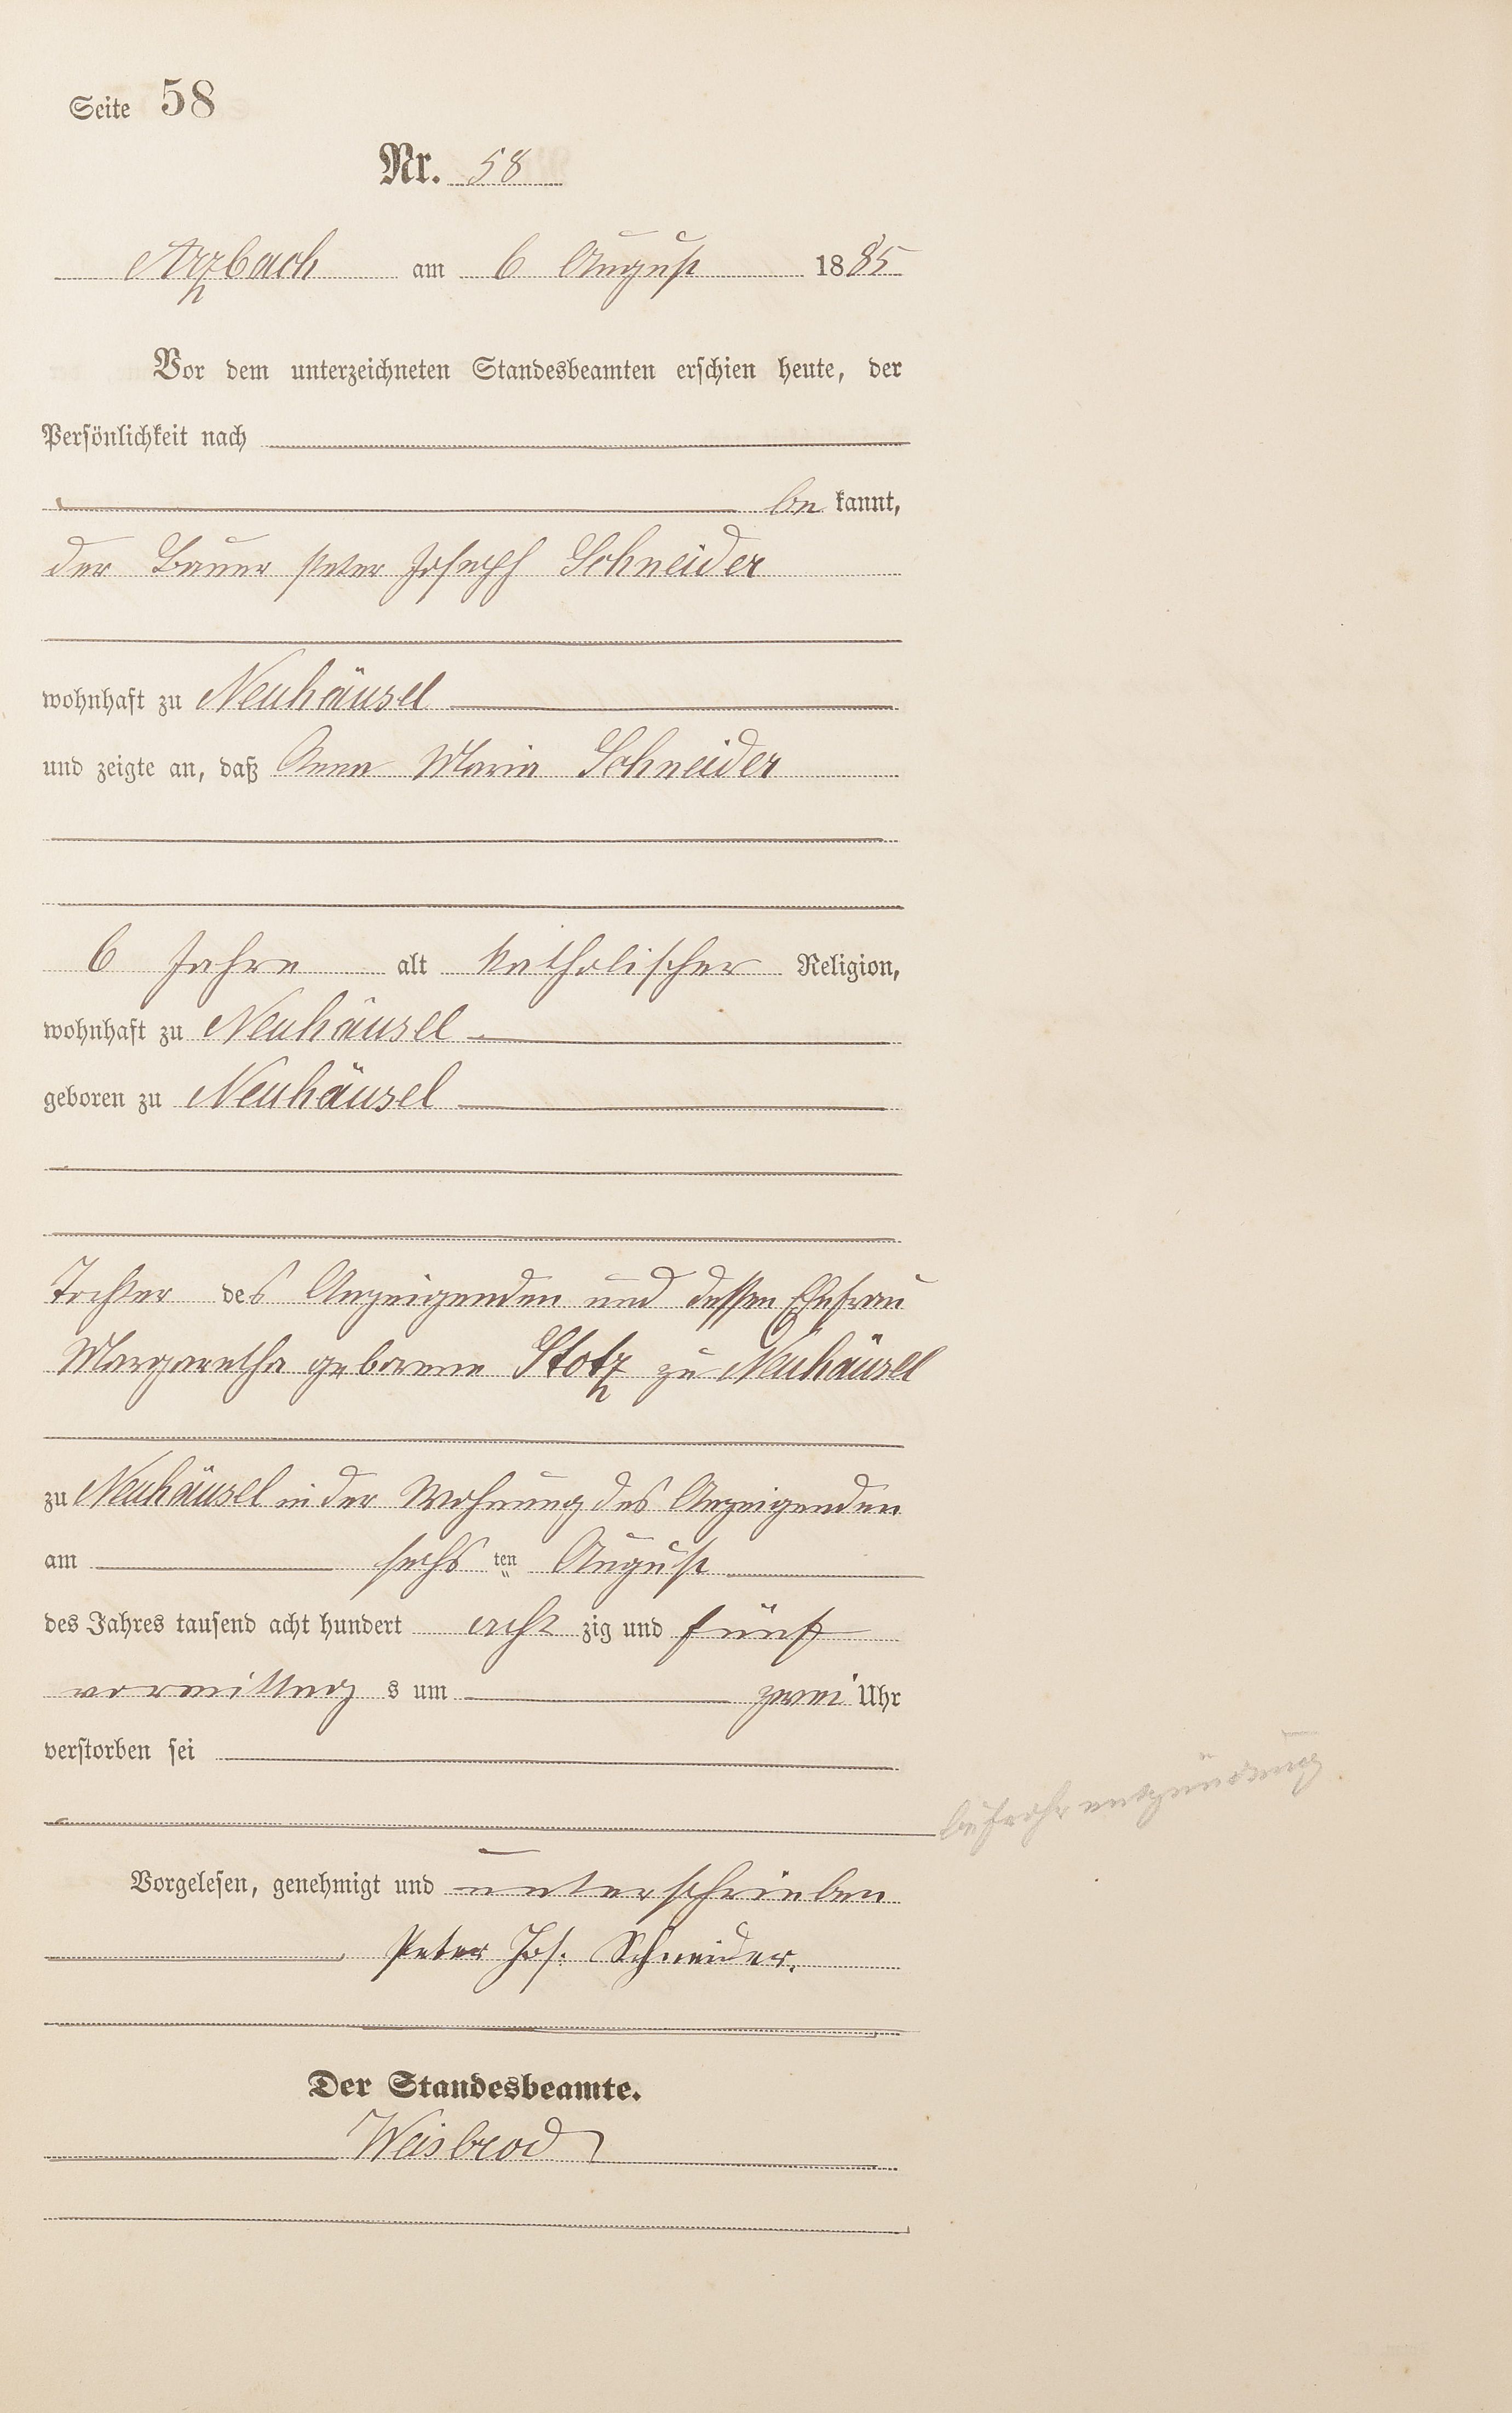 Seite 58
Nr. 58
Arzbach am 6 August 1885
Vor dem unterzeichneten Standesbeamten erschien heute, der
Persönlichkeit nach
be kannt,
der Bauer Peter Joseph Schneider
wohnhaft zu Neuhäusel
und zeigte an, daß Anna Maria Schneider
6 Jahre alt katholischer Religion,
wohnhaft zu Neuhäusel
geboren zu Neuhäusel
Tochter des Anzeigenden und dessen Ehefrau
Margaretha geborene Stotz zu Neuhäusel
zu Neuhäusel in der Wohnung des Anzeigenden
am sechs ten August
des Jahres tausend acht hundert acht zig und fünf
vormittag s um zwei Uhr
verstorben sei
Vorgelesen, genehmigt und unterschrieben
Peter Jos. Schneider.
Der Standesbeamte.
Weisbrod